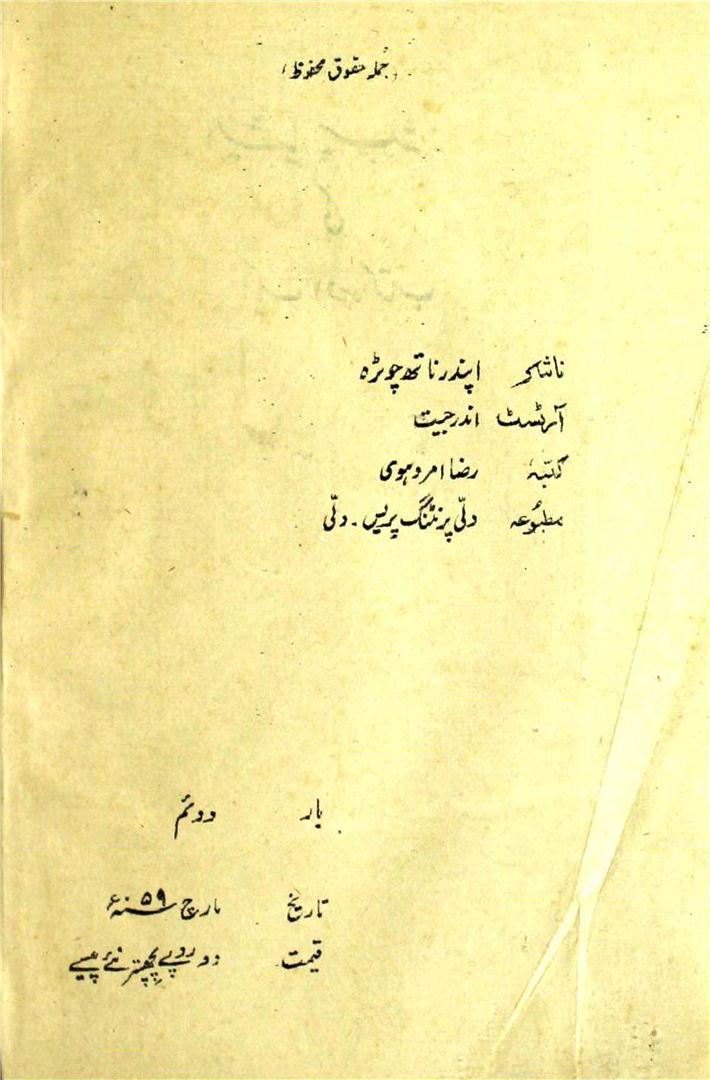 (جملہ حقوق محفوظ)
ناشر اپندر ناتھ چوپڑہ
آرٹسٹ اندرجیت
کتبہٗ رضا امروہوی
مطبُوعہ دلّی پرنٹنگ پریس ۔ دلّی
بار دوئم
تاریخ مارچ سنہ ۵۹ء
قیمت دو روپے پچھتر نئے پیسے